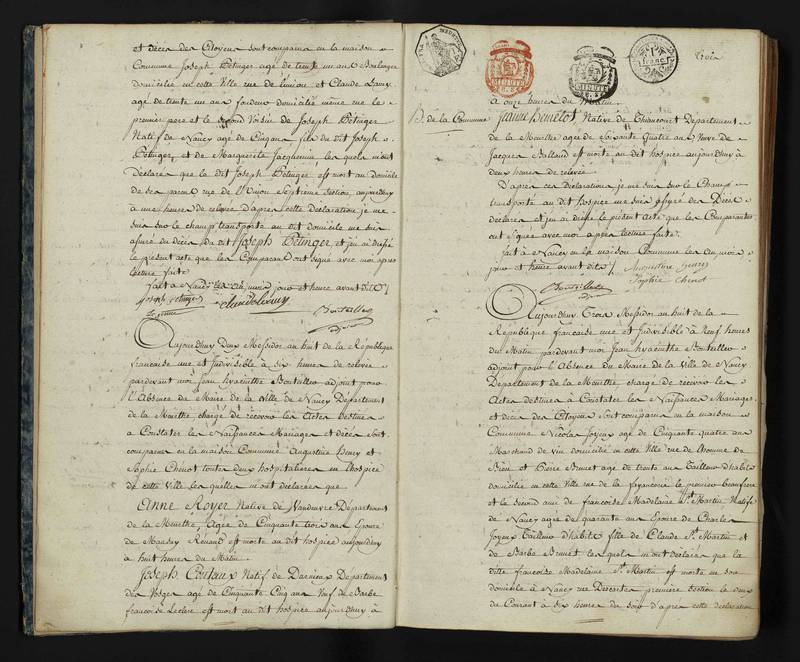 et décès des Citoyens sont comparus en la maison
Commune Joseph Petinger agé de trente un ans Boulanger
domicilié en cette Ville rue de l'union et Claude
age de trente un ans domicilié même rue le
premier pere et le second Voisin de Joseph Petinger
Natif de Nancy agé de Cinq ans fils du dit Joseph
Petinger, et de Marguerite Jacquemin, les quels m'ont
declaré que le dit Joseph Petinger est mort au domicile
de ses parens rue de l'Union Septieme section aujourdhuy
à une heure de relevée d'apres cette declaration je me
suis sur le champ transporté au dit domicile me suis
assuré du décès du dit Joseph Petinger, et j'ai dressé
le present acte que les Comparans ont signé avec moi apres
lecture faite
fait à Nancy les an mois jour et heure avant dits
Boutteiller
Aujourdhuy deux Messidor an huit de la République
francaise une et Indivisible à six heures de relevée
pardevant moi Jean hyacinthe Boutteiller adjoint pour
l'Absence du Maire de la Ville de Nancy Département
de la Meurthe chargé de recevoir les Actes destinés
à Constater les Naissances Mariages et décès sont
comparues en la maison Commune Augustine Henry et
Sophie Chenot toutes deux hospitalieres en l'hospice
de cette Ville les quelles m'ont declarées que
Anne Royer Native de Vandoeuvre Département
de la Meurthe, Agée de Cinquante trois ans Epouse
de Mansuy Renaud est morte au dit hospice aujourdhuy
à huit heures du Matin.
Joseph Coutaux Natif de Darnieux Département
des Vosges agé de Cinquante Cinq ans Veuf de Barbe
francoise Leclerc est mort au dit hospice aujourdhuy à
MINUTE
MINUTE
1 franc
trois
à onze heures du Matin
D. de la Commune
Jeanne Benelot Native de Thiaucourt Département
de la Meurthe agée de soixante Quatre ans Veuve de
Jacques Balland est morte au dit hospice aujourdhuy à
deux heures de relevée
D'apres ces declarations je me suis sur le Champ
transporté au dit hospice me suis assuré des Décès
declarés et j'en ai dressé le present Acte que les Comparantes
ont signé avec moi apres lecture faite.
fait à Nancy en la maison Commune les an mois
jour et heure avant dits
Augustine henry
Sophie Chenot
Boutteiller
Aujourdhuy Trois Messidor an huit de la
République francaise une et Indivisible à Neuf heures
du Matin pardevant moi Jean hyacinthe Boutteiller
adjoint pour l'Absence du Maire de la Ville de Nancy
Département de la Meurthe chargé de recevoir les
Actes destinés à Constater les Naissances Mariages
et décès des Citoyens sont comparus en la maison
Commune Nicolas Joyeux agé de Cinquante quatre ans
Marchand de vin domicilié en cette Ville rue de l'homme de
Bien et Pierre Brunet agé de trente ans Tailleur d'habits
domicilié en cette Ville rue de la fayencerie le premier beaufrere
et le second ami de francoise Madelaine St Martin Native
de Nancy agée de quarante ans Epouse de Charles
Joyeux Tailleur d'habits fille de Claude St Martin et
de Barbe Brunet les quels m'ont declaré que la
ditte francoise Madelaine St Martin est morte en son
domicile à Nancy rue Descartes premiere section le deux
du Courant à six heures du soir d'apres cette declaration